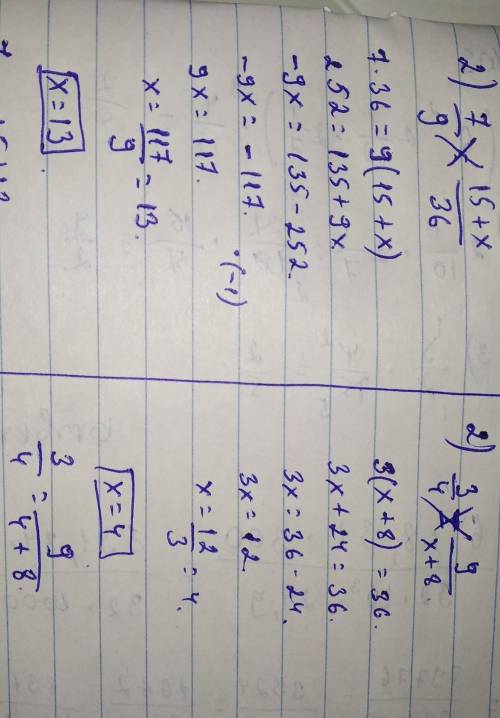 2) 7/9 = (15+x)/36
7·36 = 9(15+x)
252 = 135+9x
-9x = 135-252.
-9x = -117. ·(-1)
9x = 117.
x = 117/9 = 13.
x = 13
2) 3/4 = 9/(x+8)
3(x+8) = 36.
3x+24 = 36.
3x = 36-24.
3x = 12.
x = 12/3 = 4.
x = 4
3/4 = 9/(4+8).